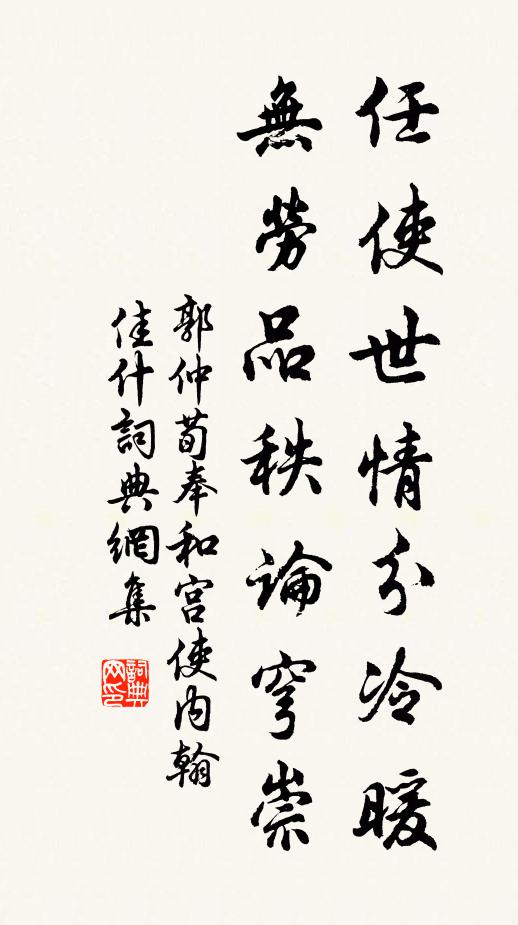 任使世情分冷暖
無勞品秩論穹崇
郭仲荀奉和宫使内翰
佳什詞典網集
詞典网印